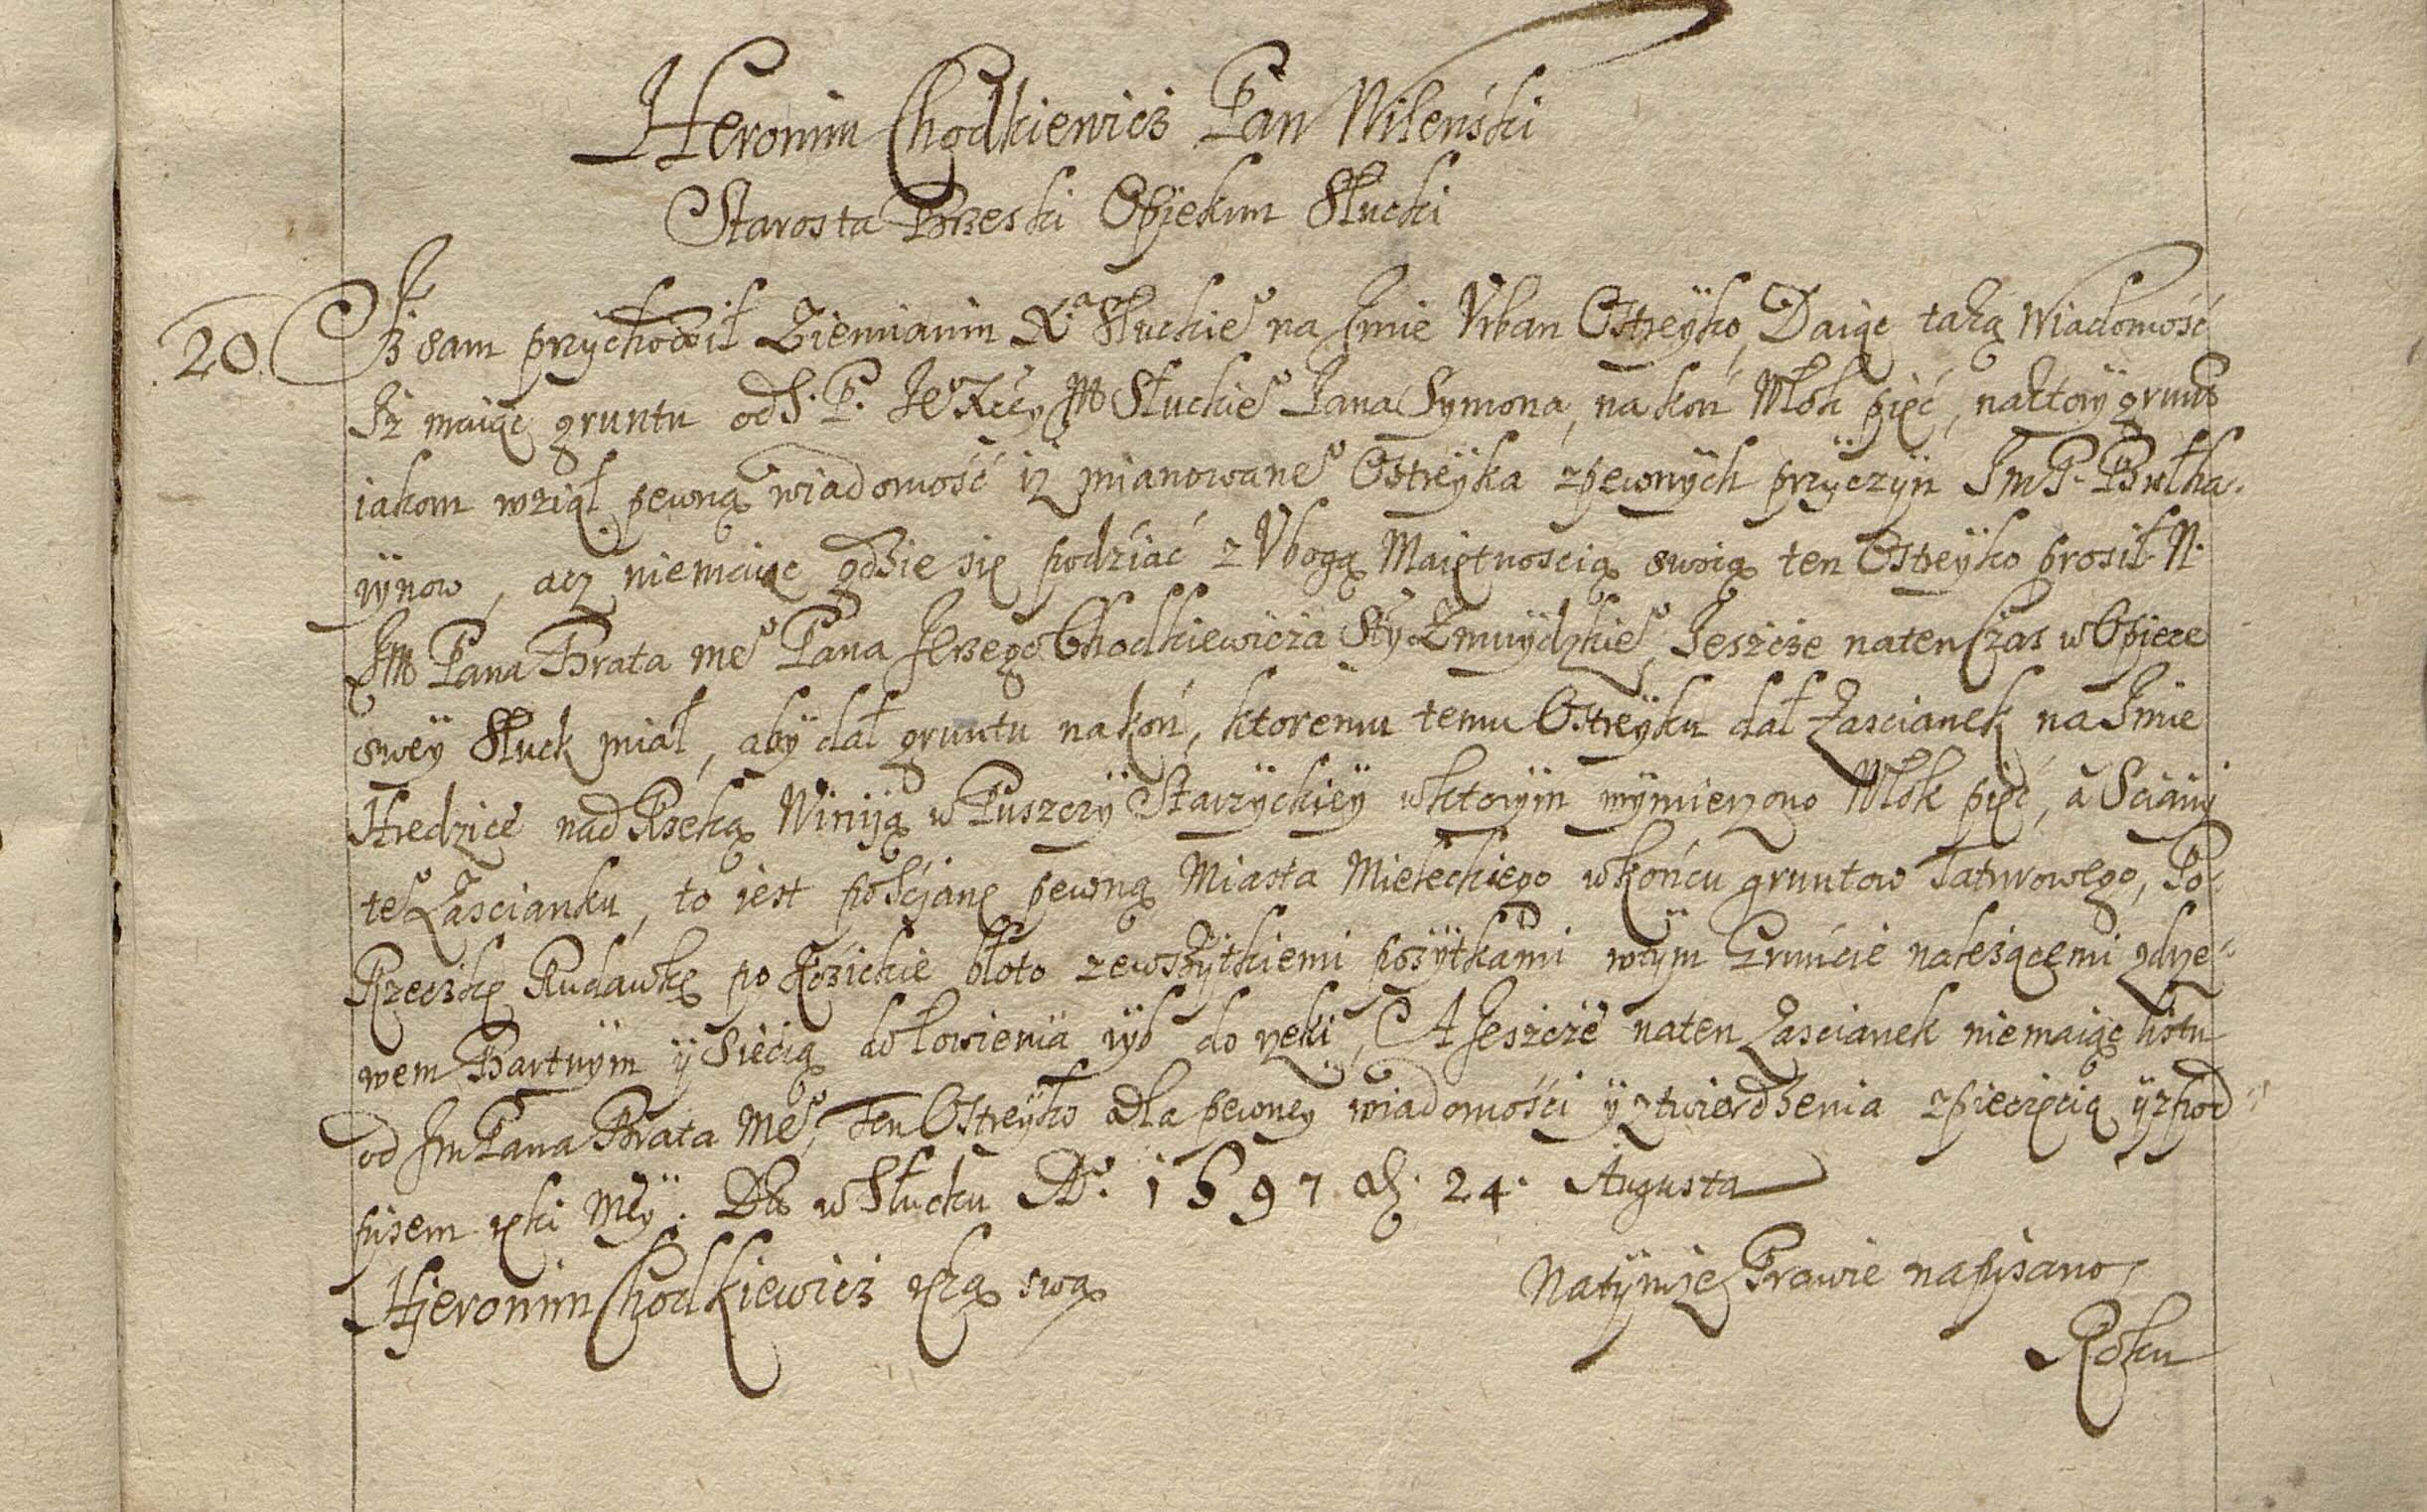 Heronim Chodkiewicz Pan Wilenski
Starosta Brzeski Opiekun Słucki
20. Iż sam przychodził Ziemianin Xa Słuckie° na Imie Vrban Ostreyko, Daiąc taką Wiadomość
Iż maiąc gruntu od S. P. Je° Słuckie° Jana Symona, na koń Włok pięć, naktory grunt
iakom wziął pewną wiadomość iz mianowane° Ostreyka zpewnych przyczyn Im P.
rynow, acz niemaiąc gdzie się podziać z Vbogą Maiętnoscią swoią ten Ostreyko prosił N.
JM Pana Brata me° Pana Jerzego Chodkiewicza Sty Zmuydzkie°, Jeszcze naten Czas w Opiece
swey Słuck miał, aby dał gruntu na koń, ktoremu temu Ostreyku dał Zascianek na Imie
Hredzice nad Rzeką Winiją w Puszczy Starzyckiey wktorym wymierzono Włok pięć, a Sciany
te° Zascianku, to jest po Scianę pewną Miasta Mieleckiego wkońcu gruntow Taturowego, Po
Rzeczkę Rudawkę po Kozickie błoto zewszytkiemi pożytkami wtym Gruncie należącemi zdrze-
wem Bartnym y Siecią do łowienia ryb do rzeki, A Jeszcze naten Zascianek niemaiąc listu
od Jm Pana Brata Me°, Ten Ostreyko dla pewney wiadomości y ztwierdzenia zpieczęcią y zpod-
pisem ręki Mey. Dt w Słucku A°. 1597 d. 24. Augusta
Hieronim Chodkiewicz ręką swą
Natymże Prawie napisano
Roku